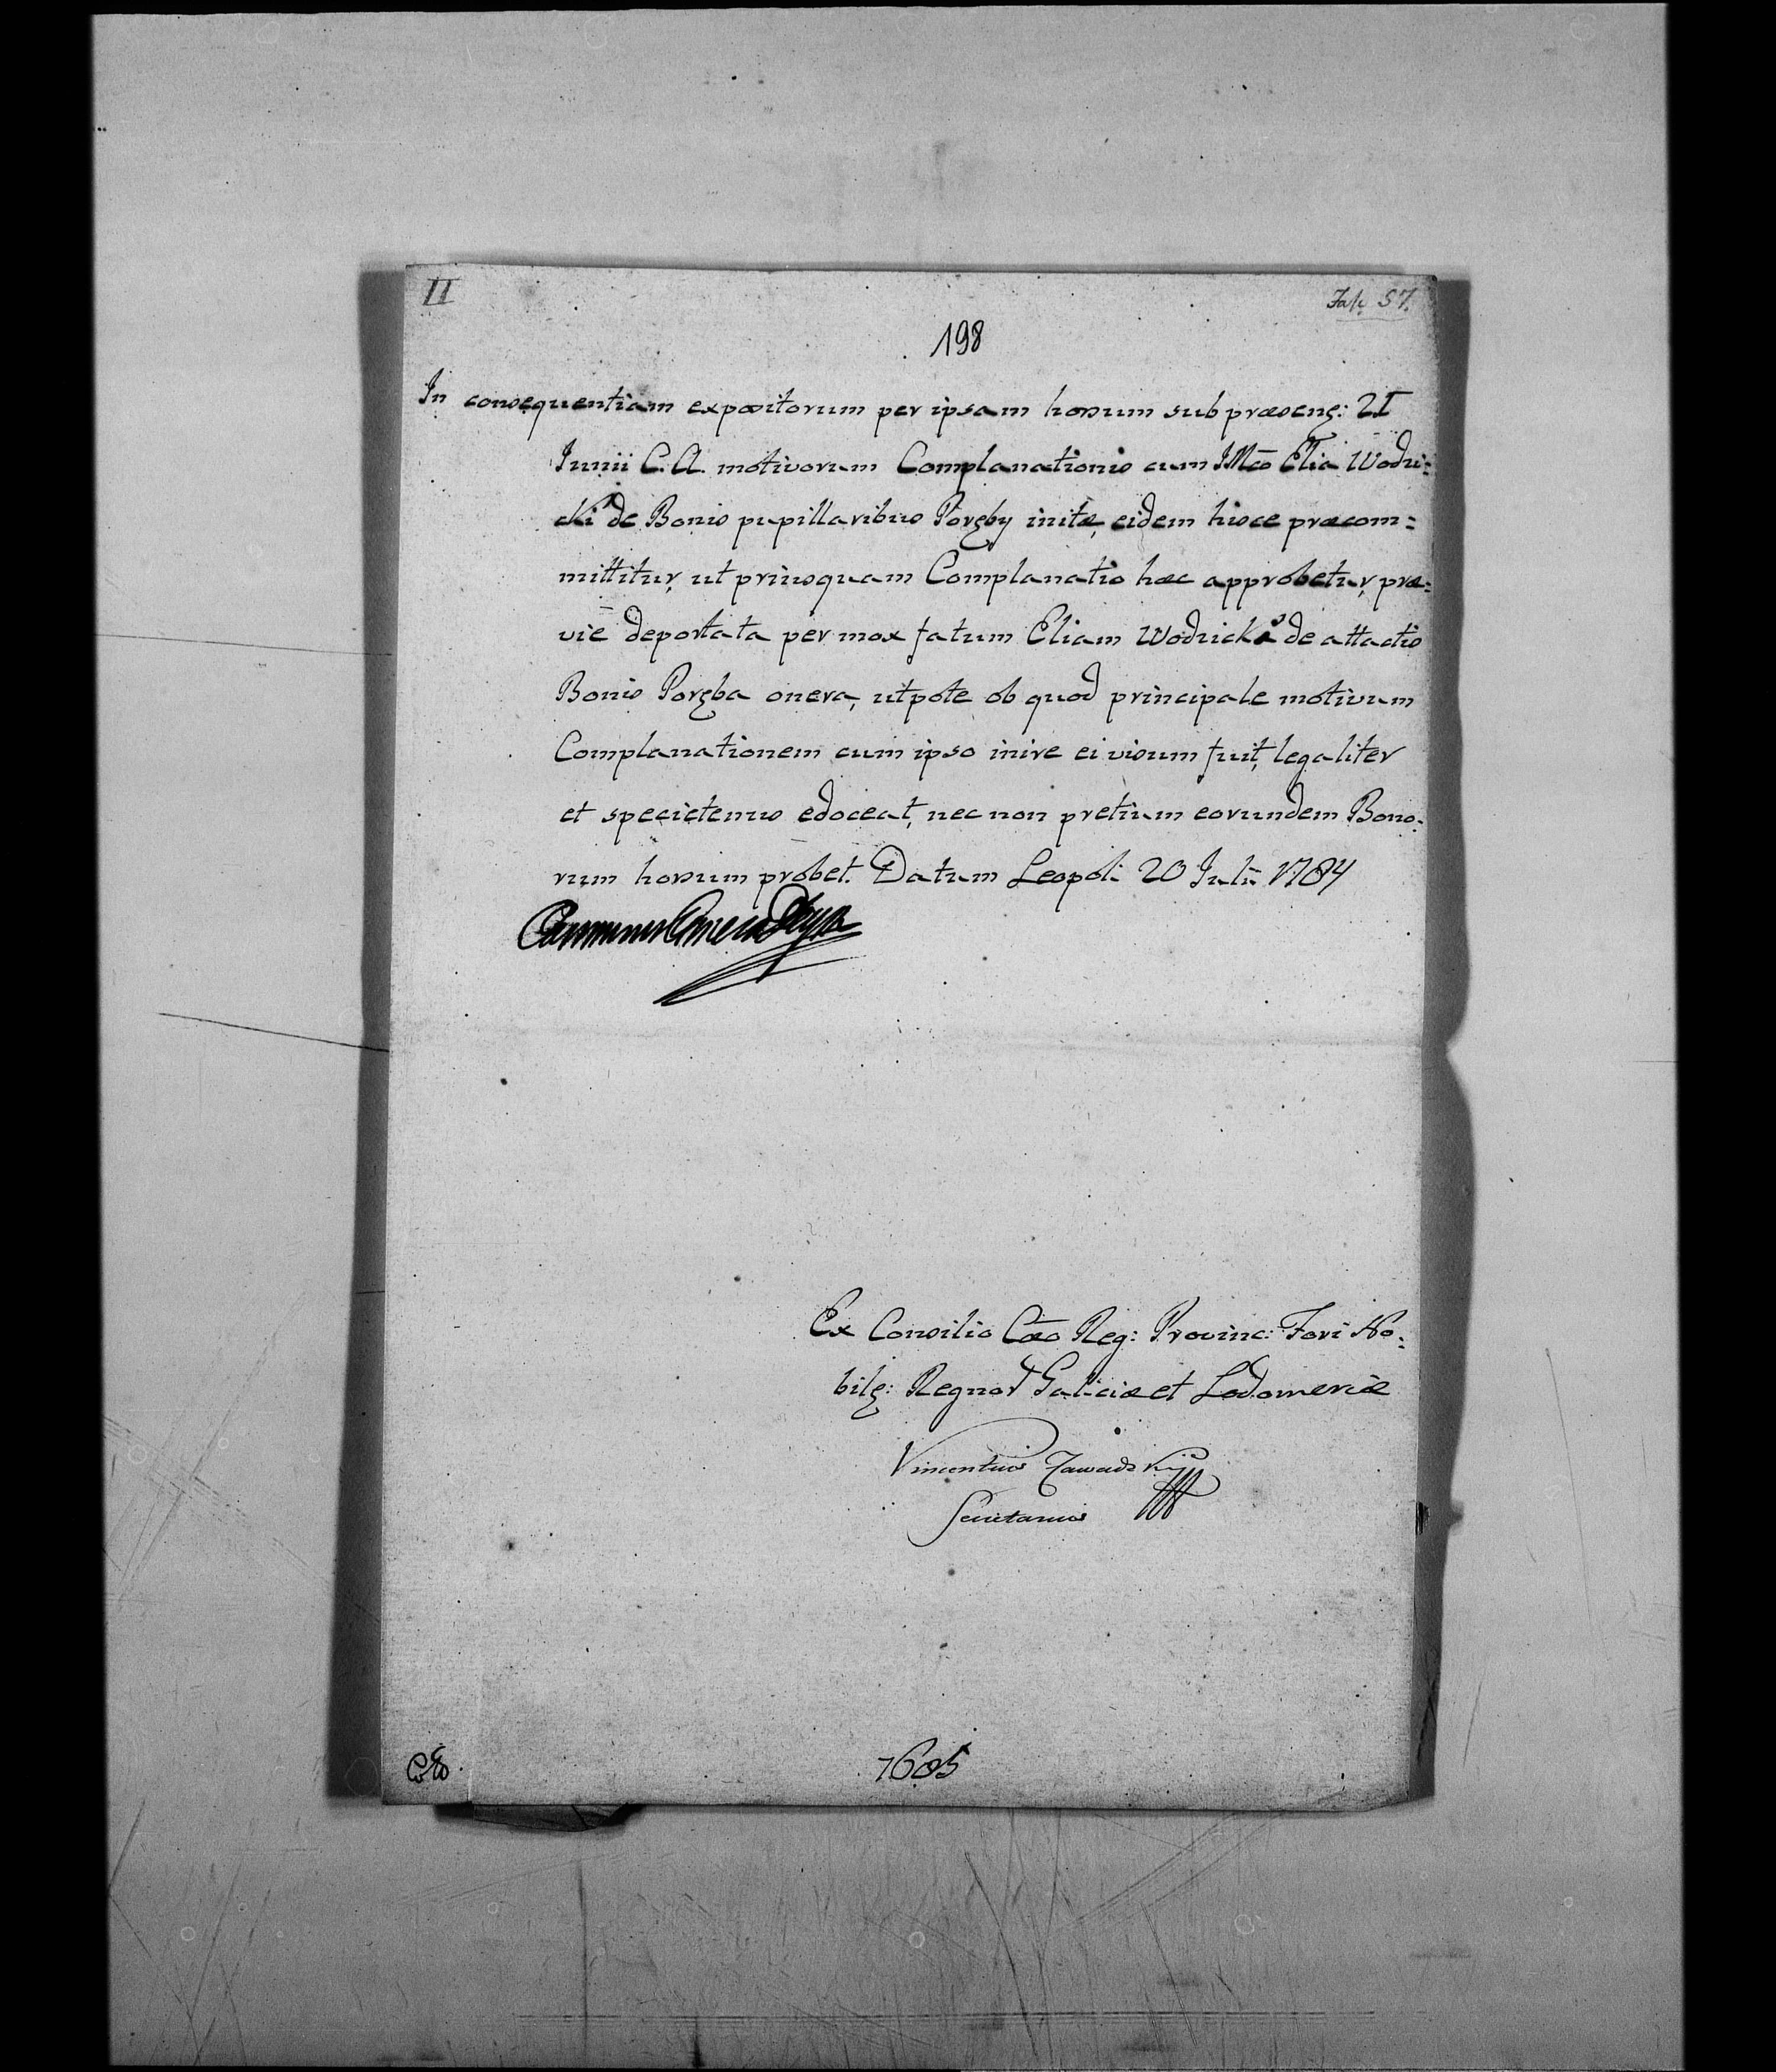 II
Fasc. 57.
198
In consequentiam expositorum per ipsam horsum sub præsentț: 21
Junii C. A. motivorum Complanationis cum IMco Elia Wodzi=
cki de Bonis pupillaribus Poręby initæ, eidem hisce præcom=
mittitur, ut priusquam Complanatio hæc approbetur, præ=
vie deportata per mox fatum Eliam Wodzicki de attactis
Bonis Poręba onera, utpote ob quod principale motivum
Complanationem cum ipso inire ei visum fuit, legaliter
et specietenus edoceat, nec non pretium eorundem Bono=
rum horsum probet. Datum Leopoli 20 Julii 1784
Ex Consilio Cæo Reg: Provinc: Fori No=
bilț: Regnor Galiciæ et Lodomeriæ
Vincentius Zawadzki
Secretarius
7605